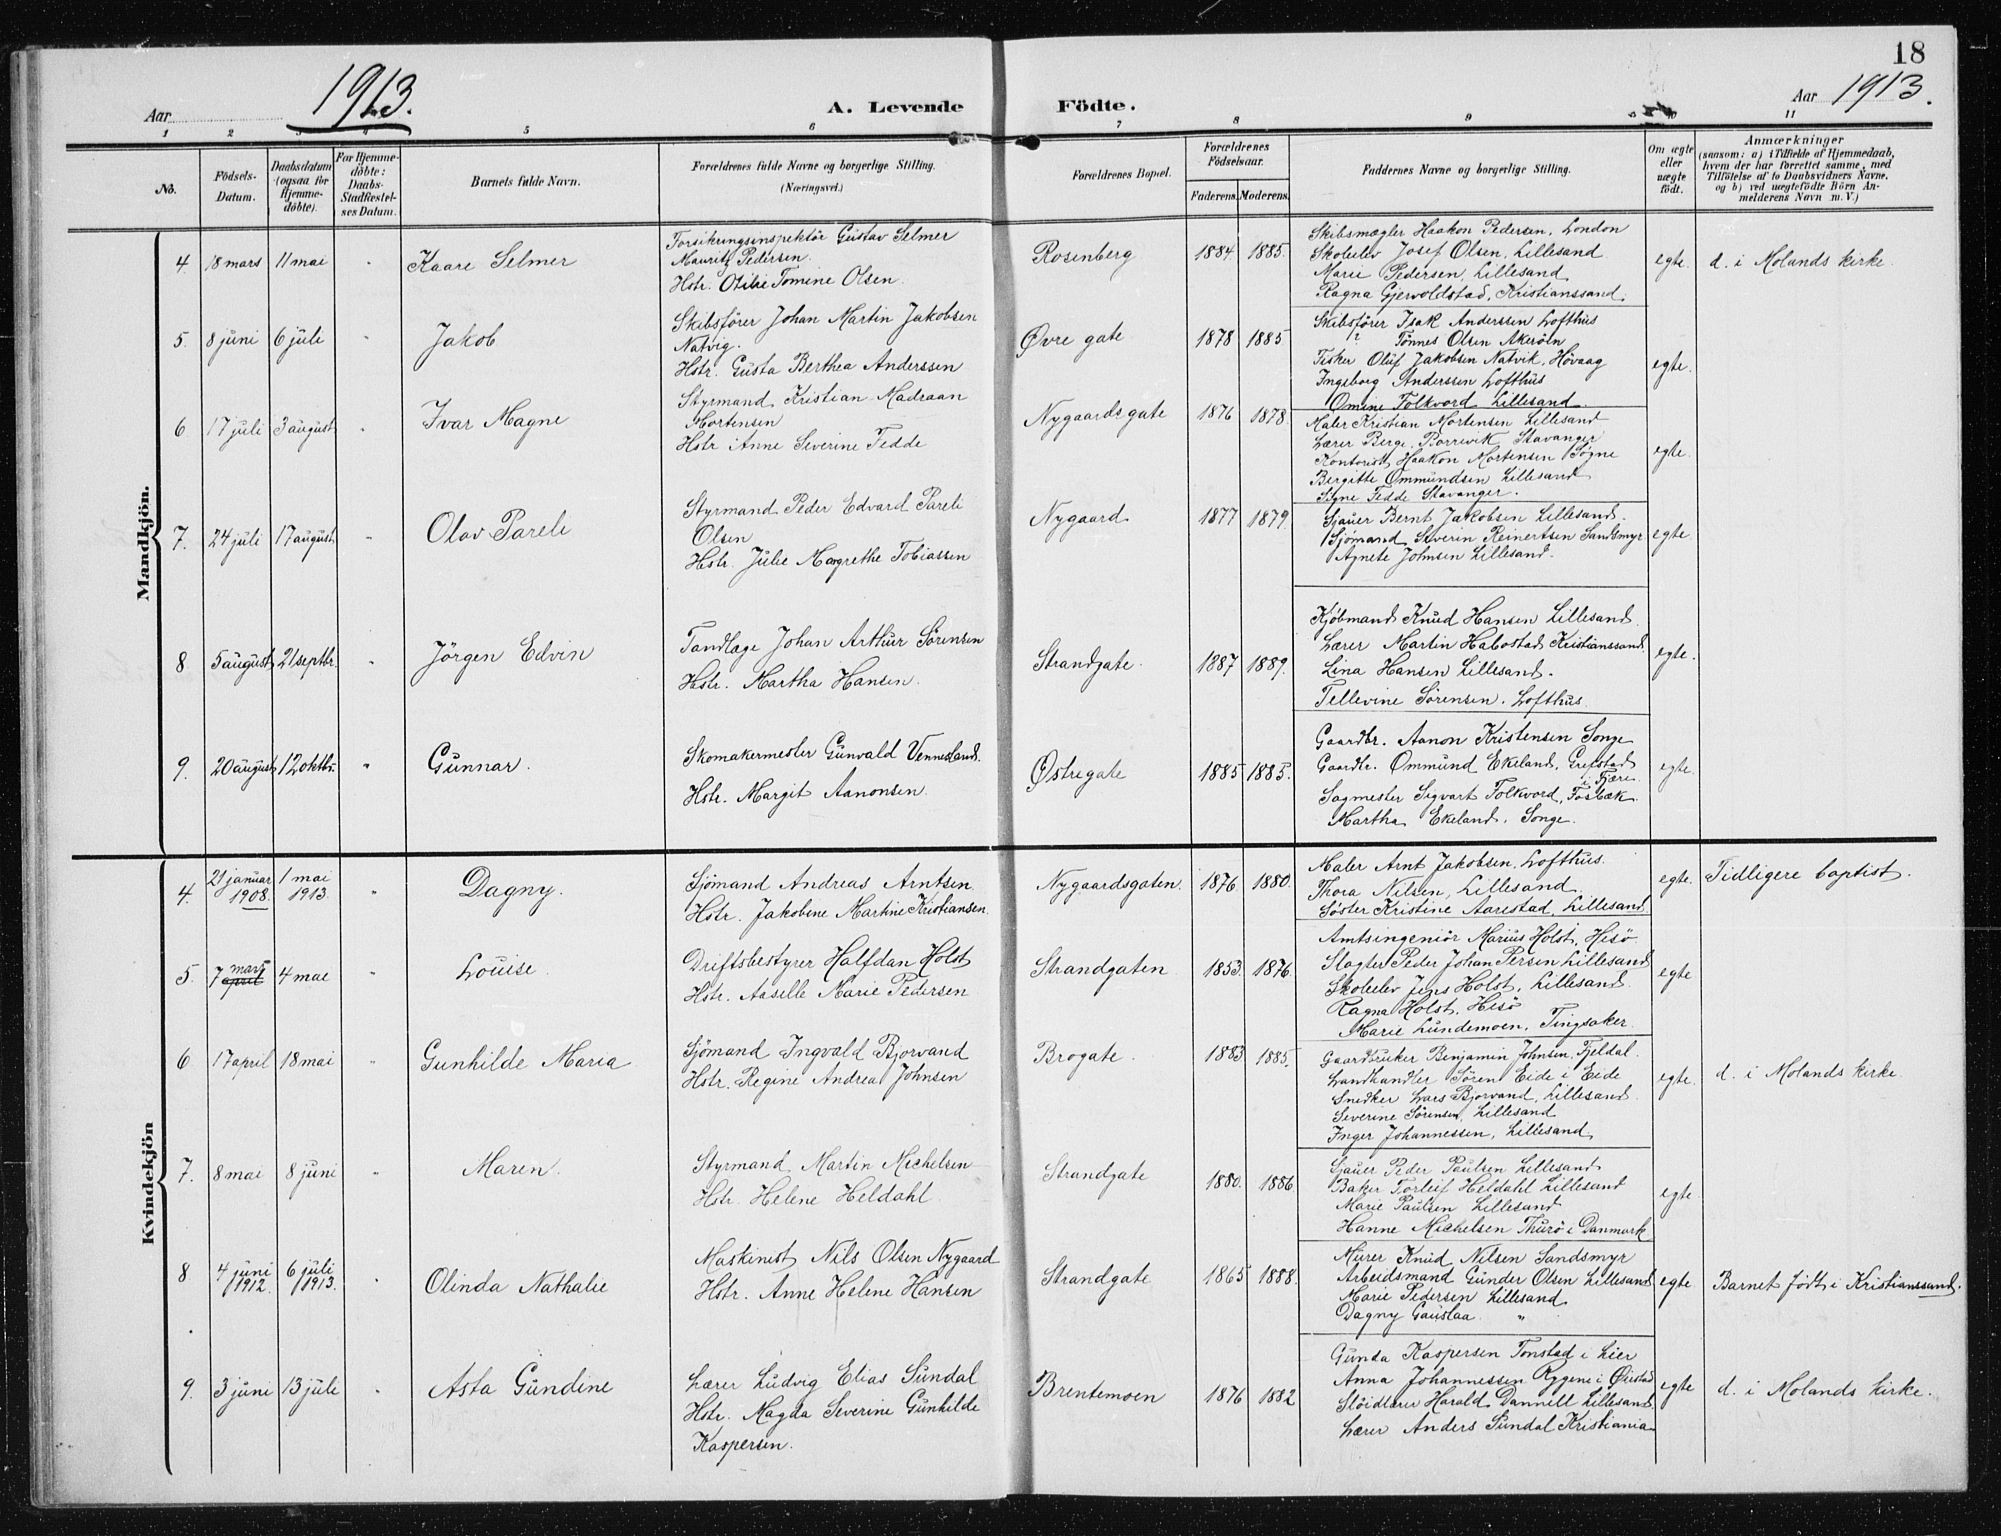 18
Aar 1913.
A. Levende Födte.
Aar 1913.
1 2 3 4 5 6 7 8 9 10 11
No.
Födsels-
Datum.
Daabsdatum
(ogsaa for
Hjemme-
døbte).
For Hjemme-
døbte:
Daabs-
Stadfæstel-
ses Datum.
Barnets fulde Navn.
Forældrenes fulde Navne og borgerlige Stilling.
(Næringsvei.)
Forældrenes Bopæl.
Forældrenes
Födselsaar.
Faderens. Moderens.
Faddernes Navne og borgerlige Stilling.
Om ægte
eller
uægte
født.
Anmærkninger
(saasom: a) i Tilfælde af Hjemmedaab,
hvem der har forrettet samme, med
Tilföielse af to Daabsvidners Navne,
og b) ved uægtefödte Börn An-
melderens Navn m. V.)
Mandkjön.
4 18 mars 11 mai " Kaare Selmer
Forsikringsinspektör Gustav Selmer
Mauritz Pedersen.
Hstr. Otilie Tomine Olsen.
Rosenberg 1884. 1885.
Skibsmægler Haakon Pedersen, London
Skoleelev Josef Olsen, Lillesand
Marie Pedersen, Lillesand
Ragna Gjervoldstad, Kristianssand.
egte. d. i Molands kirke.
5. 8 juni 6 juli " Jakob
Skibsfører Johan Martin Jakobsen
Natvig.
Hstr. Gusta Berthea Anderssen
Øvre gate 1878 1885
Skibsförer Isak Anderssen Lofthus
" Tönnes Olsen Akeröln
Fisker Oluf Jakobsen Natvik, Hövaag
Ingeborg Anderssen Lofthus
Omine Folkvord Lillesand.
egte.
6 17 juli 3 august " Ivar Magne
Styrmand Kristian Madraan
Mortensen
Hstr. Anne Severine Tedde
Nygaardsgate 1876 1878.
Maler Kristian Mortensen Lillesand
Lærer Berge Borrevik Stavanger
Kontorist Haakon Mortensen Søgne
Bergitte Ommundsen Lillesand
Signe Tedde Stavanger.
egte.
7. 24 juli 17 august " Olav Pareli
Styrmand Peder Edvard Pareli
Olsen
Hstr. Julie Margrethe Tobiassen
Nygaard 1877 1879.
Sjauer Bernt Jakobsen Lillesand.
Sjømand Severin Reinertsen Sandsmyr
Agnete Johnsen Lillesand.
egte.
8 5 august 21 septbr. " Jörgen Edvin
Tandlæge Johan Arthur Sörensen
Hstr. Martha Hansen.
Strandgate. 1887 1889.
Kjøbmand Knud Hansen Lillesand.
Lærer Martin Habostad Kristianssand
Lina Hansen Lillesand.
Tellevine Sørensen. Lofthus
egte.
9. 20 august 12 oktbr. " Gunnar.
Skomakermester Gunvald Vennesland.
Hstr. Margit Aanonsen.
Østregate 1885 1885.
Gaardbr. Aanon Kristensen Songe
Gaardbr. Ommund Ekeland, Grefstad
i Fjære.
Sagmester Sigvart Folkvord, Fosbæk.
Martha Ekeland, Songe.
egte.
Kvindekjön
4. 21 januar 1908. 1 mai 1913. " Dagny.
Sjömand Andreas Arntsen.
Hstr. Jakobine Martine Kristiansen.
Nygaardsgaten. 1876 1880.
Maler Arnt Jakobsen, Lofthus.
Thora Nilsen, Lillesand.
Söster Kristine Aarestad, Lillesand
egte. Tidligere baptist.
5. 7 april mars 4 mai " Louise.
Driftsbestyrer Halfdan Holst
Hstr. Aaselle Marie Pedersen
Strandgaten 1853. 1876.
Amtsingeniör Marius Holst, Hisö
Slagter Peder Johan Persen Lillesand
Skoleelev Jens Holst, Lillesand.
Ragna Holst, Hisö
Marie Lundemoen, Tingsaker
egte
6 17 april 18 mai " Gunhilde Maria
Sjömand Ingvald Bjorvand
Hstr. Regine Andrea Johnsen
Brogate. 1883 1885.
Gaardbruker Benjamin Johnsen, Fjeldal.
Landhandler Sören Eide i Eide
Snedker Lars Bjorvand, Lillesand.
Severine Sörensen, Lillesand
Inger Johannessen, Lillesand
egte. d. i Molands kirke.
7. 8 mai 8 juni " Maren.
Styrmand Martin Michelsen
Hstr. Helene Heldahl.
Strandgate 1880. 1886.
Sjauer Peder Paulsen Lillesand
Baker Torleif Heldahl Lillesand
Marie Paulsen Lillesand
Hanne Michelsen Thurö i Danmark
egte
8 4 juni 1912. 6 juli 1913. " Olinda Nathalie
Maskinist Nils Olsen Nygaard
Hstr. Anne Helene Hansen
Strandgate 1865 1888.
Murer Knud Nilsen Sandsmyr
Arbeidsmand Gunder Olsen Lillesand
Marie Pedersen Lillesand
Dagny Gauslaa. "
egte Barnet født i Kristianssand.
9. 3 juni 13 jule " Asta Gundine
Lærer Ludvig Elias Sundal
Hstr. Magda Severine Gunhilde
Kaspersen.
Brentemoen 1876 1882
Gunda Kaspersen Tonstad i Lier
Anna Johannessen Rygene i Øiestad
Slöidlærer Harald Dannell Lillesand.
Lærer Anders Sundal Kristiania
egte d. i Molands kirke.